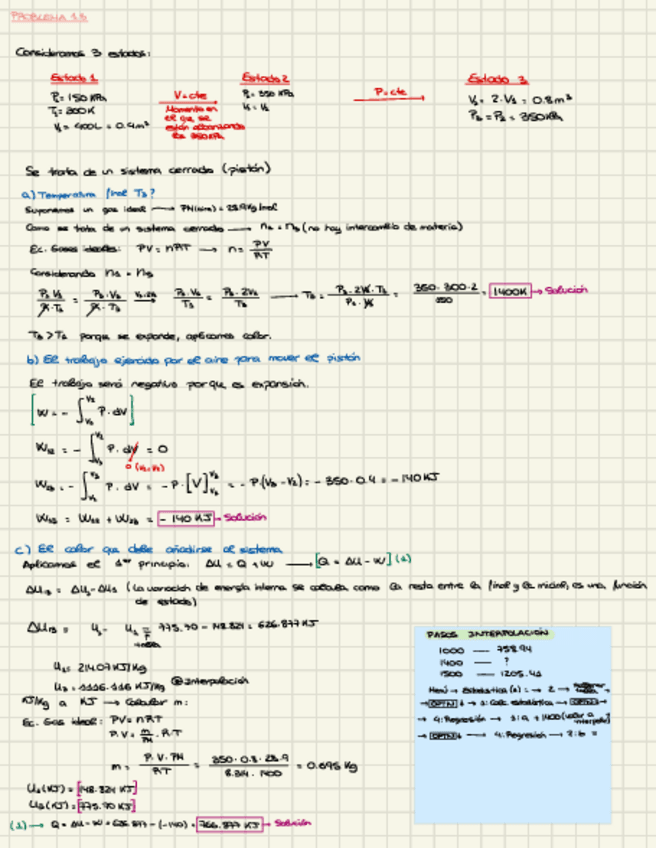 PROBLEMA 1.3
Consideramos 3 estados:
Estado 1
P₁ = 150 KPa
T₁ = 300K
V₁ = 400L = 0.4m³
V=cte
Momento en el que se están alcanzando los 350KPa
Estado 2
P₂ = 350 KPa
V₁ = V₂
P=cte
Estado 3
V₃ = 2·V₁ = 0.8m³
P₃ = P₂ = 350KPa
Se trata de un sistema cerrado (pistón)
a) Temperatura final T₃?
Suponemos un gas ideal → PM(aire) = 28.9Kg/mol
Como se trata de un sistema cerrado → n₁ = n₃ (no hay intercambio de materia)
Ec. Gases ideales: PV = nRT → n = PV/RT
Considerando n₁ = n₃
P₁V₁/R·T₁ = P₃·V₃/R·T₃ → P₁V₁/T₁ = P₃·2V₁/T₃ → T₃ = P₃·2V₁·T₁/P₁·V₁ = 350·300·2/150 = 1400K → Solución
T₃ > T₁ porque se expande, aplicamos calor.
b) El trabajo ejercido por el aire para mover el pistón
El trabajo será negativo porque es expansión.
[W = - ∫ P·dV]
W₁₂ = - ∫ P·dV = 0
0 (V₁=V₂)
W₂₃ = - ∫ P·dV = -P·[V] = -P(V₃-V₂) = -350·0.4 = -140KJ
W₁₃ = W₁₂ + W₂₃ = -140 KJ → Solución
c) El calor que debe añadirse al sistema
Aplicamos el 1er principio: ΔU = Q + W → [Q = ΔU - W] (1)
ΔU₁₃ = ΔU₃-ΔU₁ (La variación de energía interna se calcula como la resta entre la final y la inicial, es una función
de estado)
ΔU₁₃ = U₃ - U₁ = 775.70 - 148.821 = 626.877 KJ
U₁ = 214.07 KJ/Kg
U₃ = 1116.116 KJ/Kg @Interpolación
KJ/Kg a KJ → Calcular m:
Ec. Gas ideal: PV = nRT
P·V = m/PM·R·T
m = P·V·PM/R·T = 350·0.8·28.9/8.314·1400 = 0.695 Kg
U₁(KJ) = [148.821 KJ]
U₃(KJ) = [775.70 KJ]
(1) → Q = ΔU - W = 626.877 - (-140) = 766.877 KJ → Solución
PASOS INTERPOLACIÓN
1000 — 758.94
1400 — ?
1500 — 1205.41
Menú → Estadística (6) → 2 →
→ OPTN ↓ → 3: Calc. estadística → OPTN →
→ 4: Regresión →
→ OPTN ↓ → 4: Regresión →